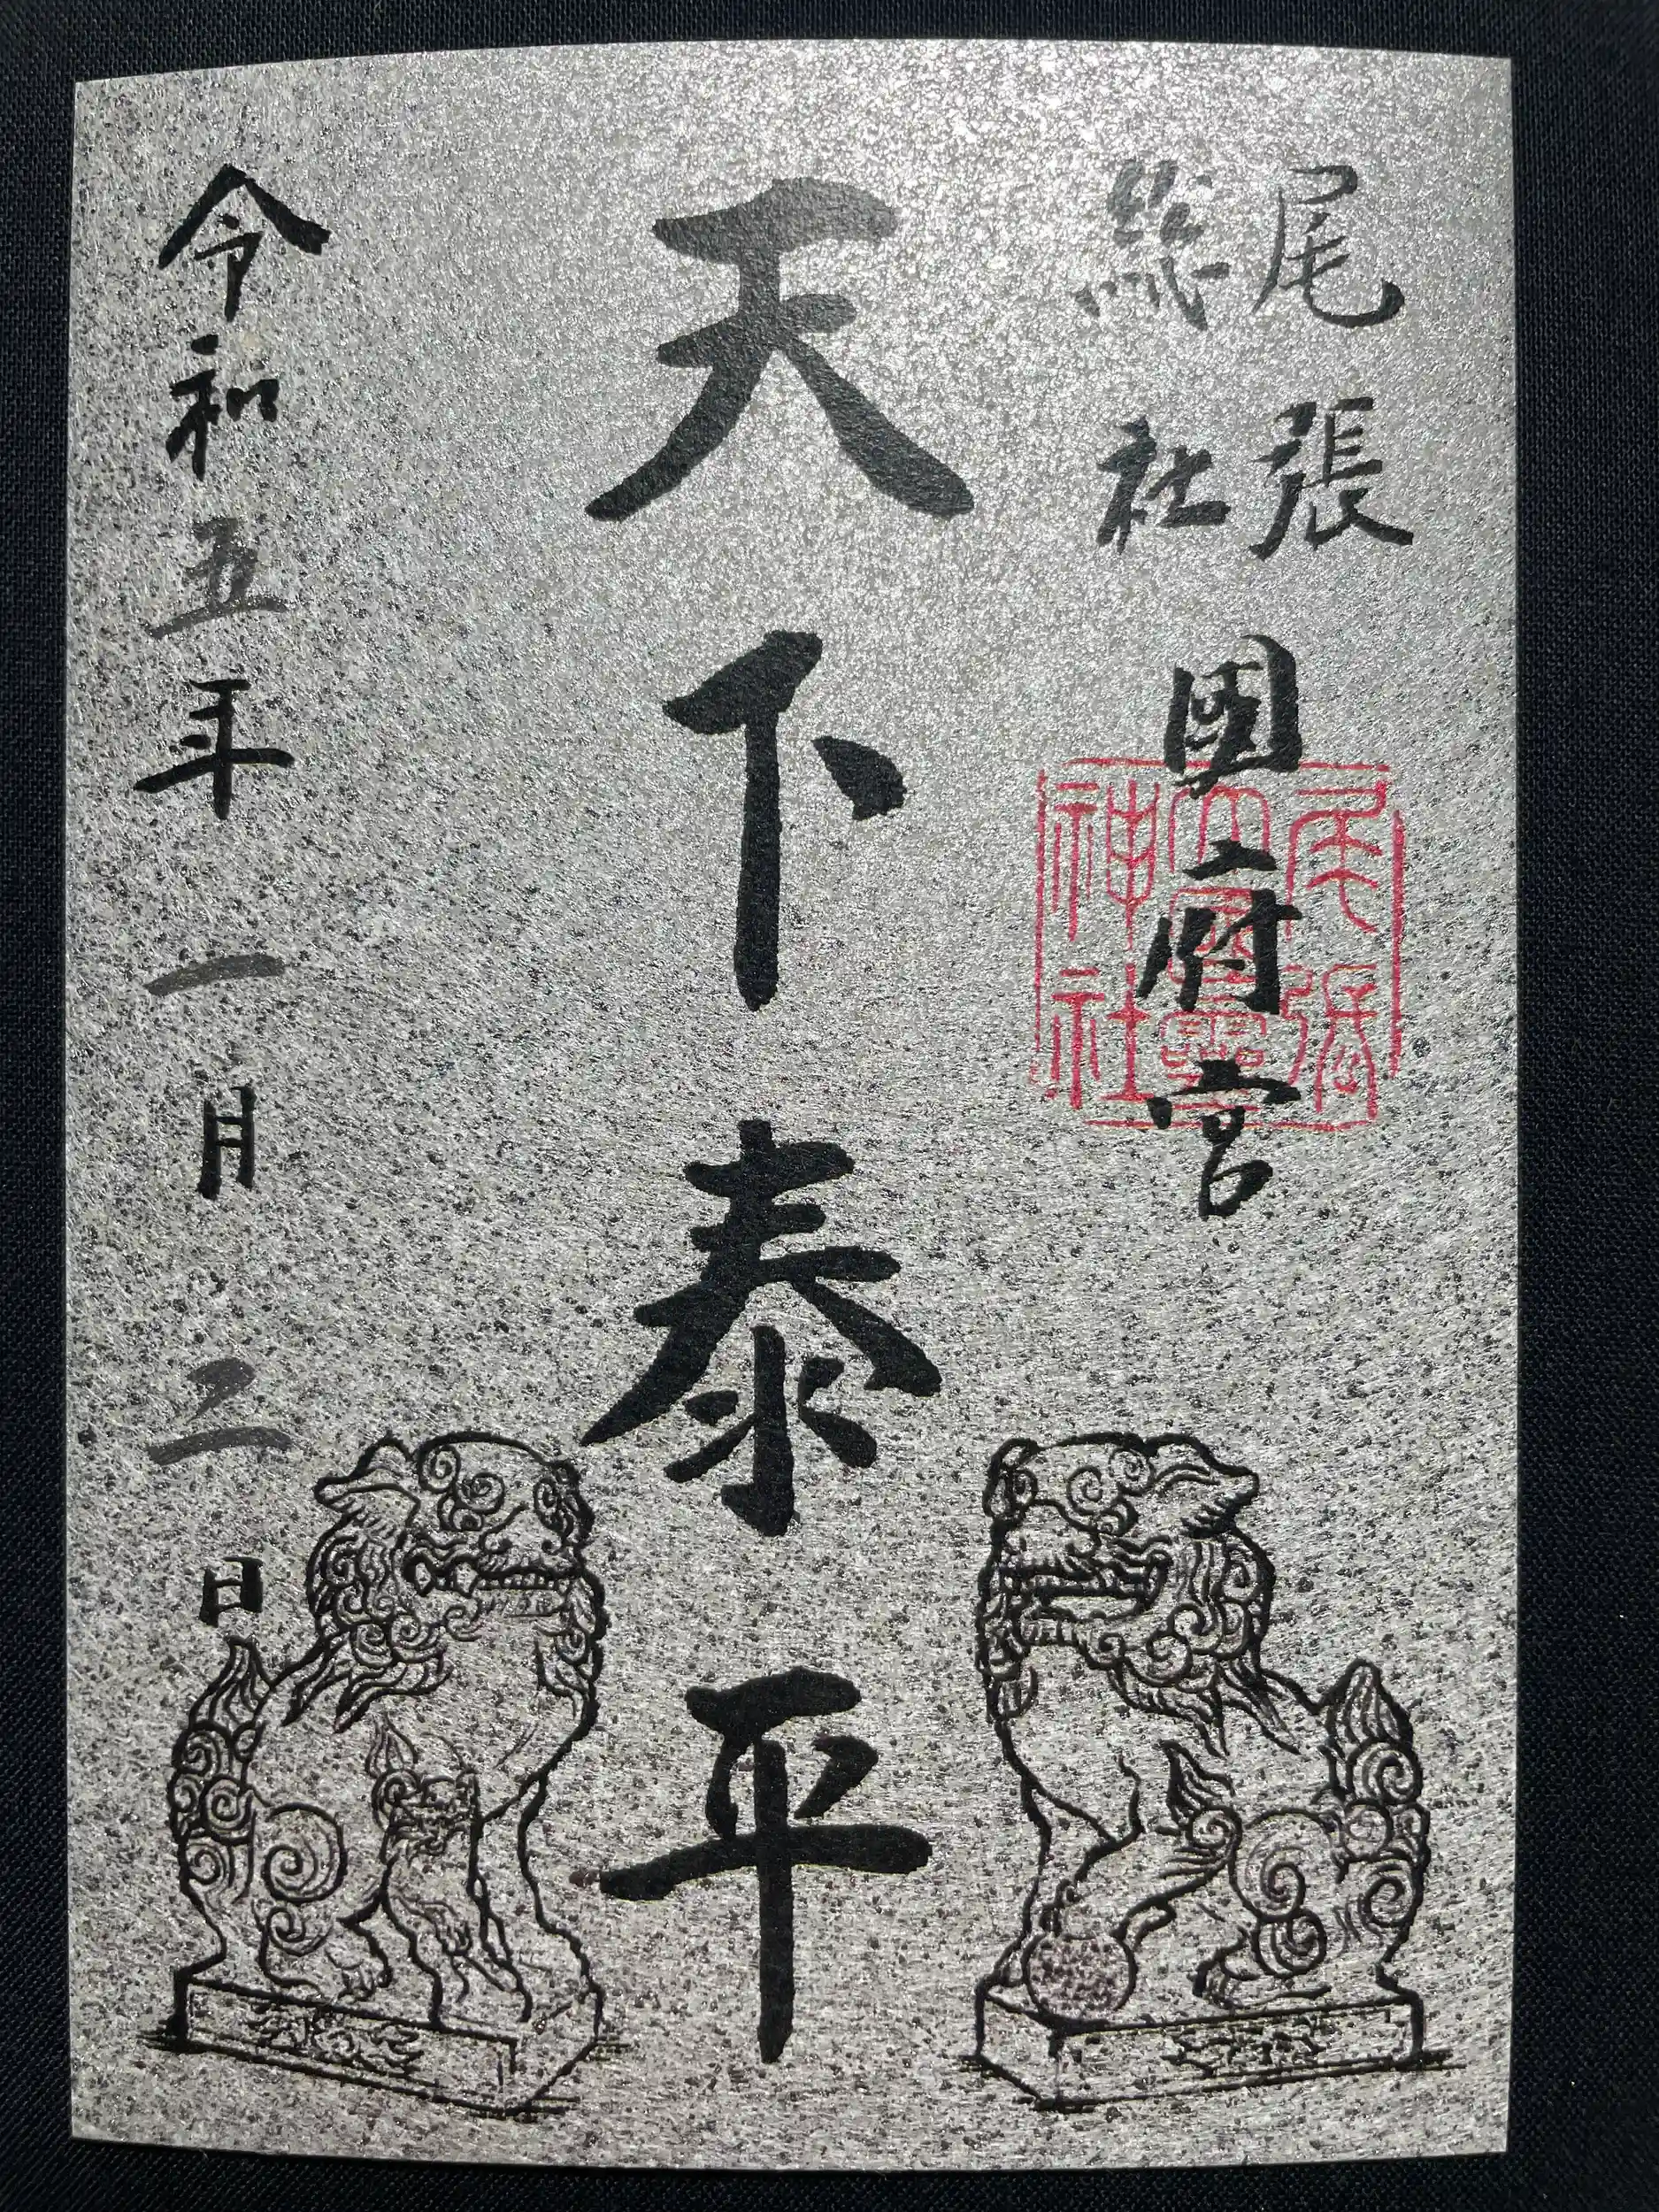 尾張
総社
国府宮
尾張
大國霊
神社
天下泰平
令和五年一月二日